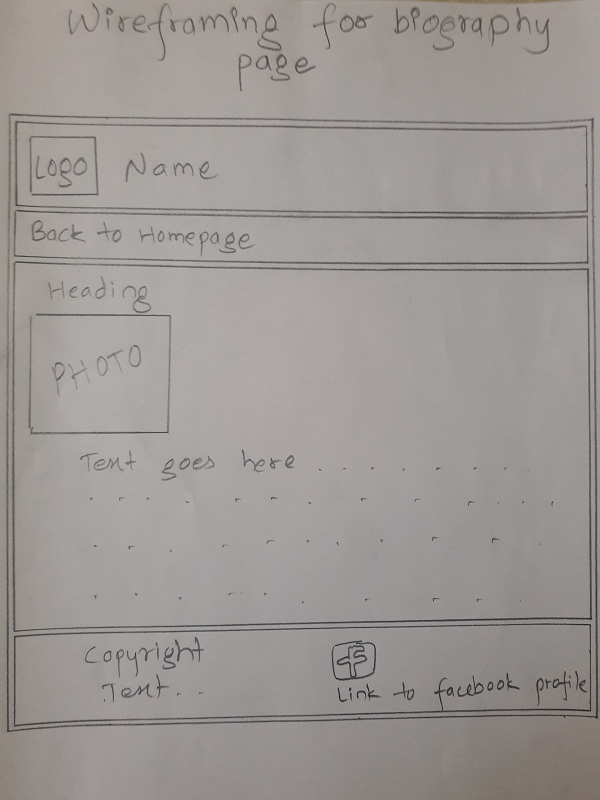 Wireframing for biography
page
Logo Name
Back to Homepage
Heading
PHOTO
Text goes here . . . . . . . .
Copyright
.. Text. ..
f
Link to facebook profile